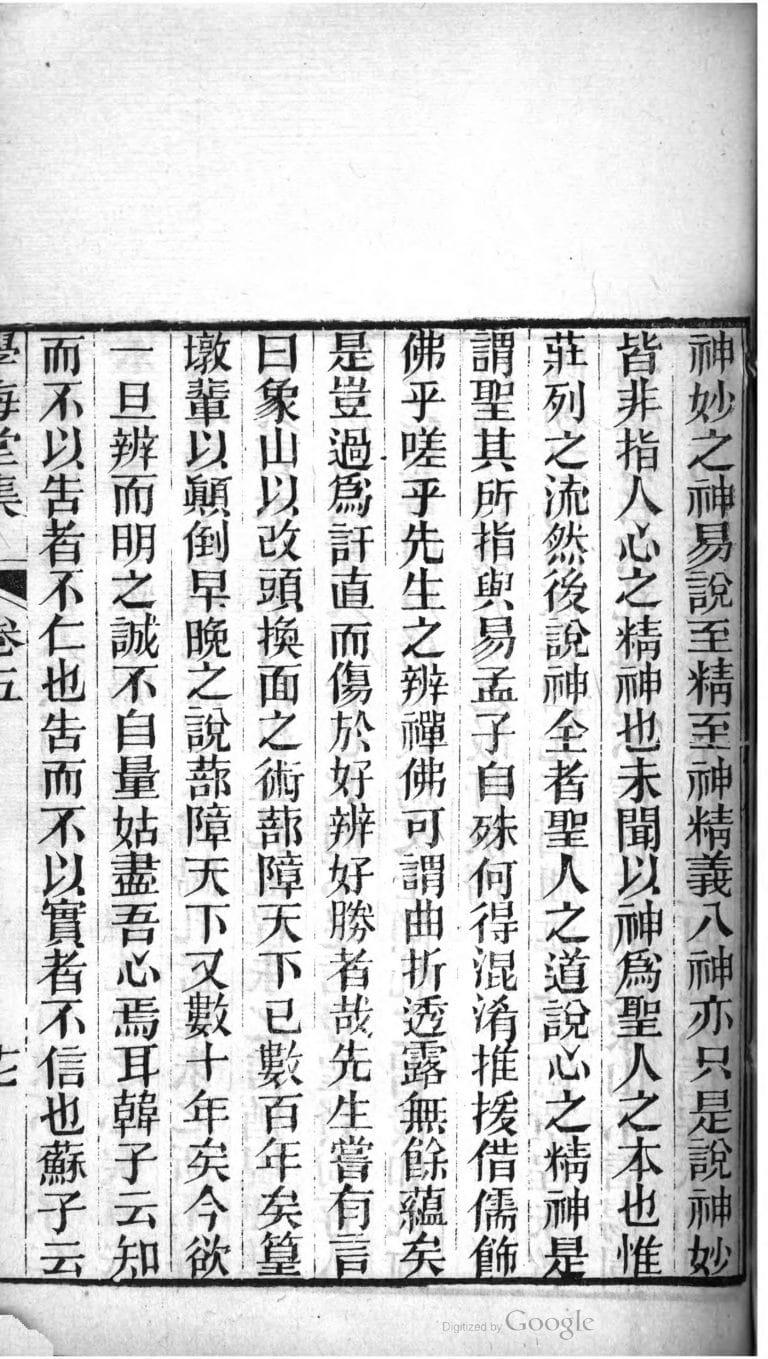 神妙之神易說至精至神精義入神亦只是說神妙
皆非指人心之精神也未聞以神爲聖人之本也惟
莊列之流然後說神全者聖人之道說心之精神是
謂聖其所指與易孟子自殊何得混淆推援借儒飾
佛乎嗟乎先生之辨禪佛可謂曲折透露無餘蘊矣
是豈過爲訐直而傷於好辨好勝者哉先生嘗有言
曰象山以改頭換面之術蔀障天下已數百年矣篁
墩輩以顚倒早晚之說蔀障天下又數十年矣今欲
一旦辨而明之誠不自量姑盡吾心焉耳韓子云知
而不以告者不仁也告而不以實者不信也蘇子云
學海堂集 卷五
Digitized by Google